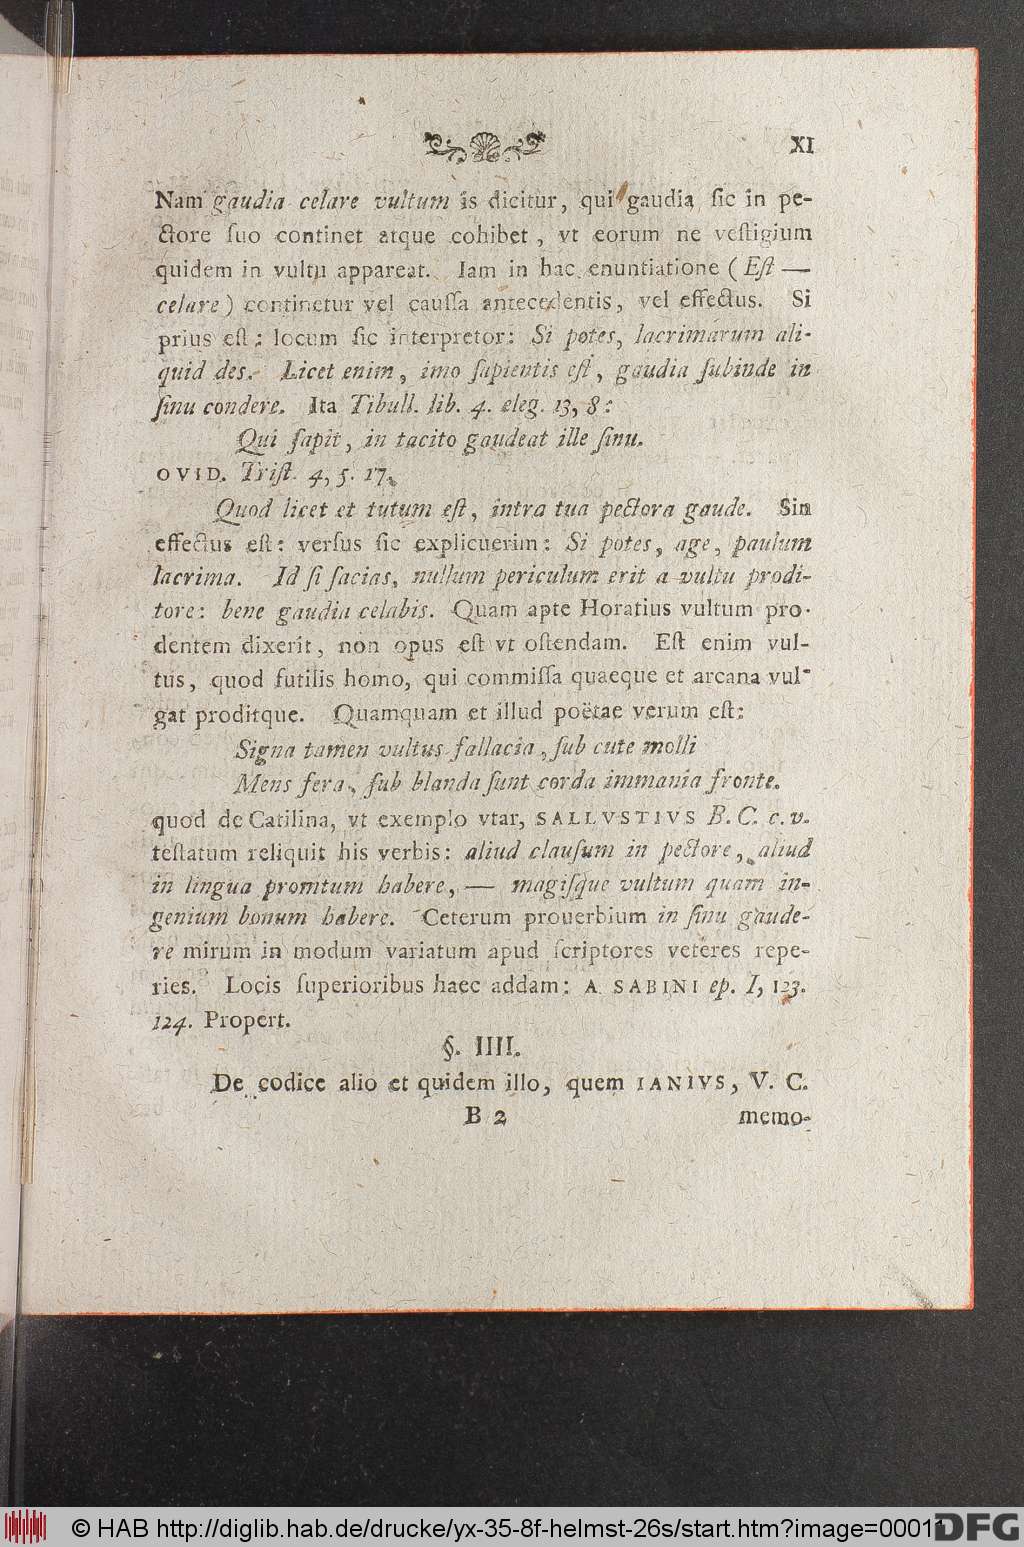 XI
Nam gaudia celare vultum is dicitur, qui gaudia ſic in pe-
ctore ſuo continet atque cohibet, vt eorum ne veſtigium
quidem in vultu appareat. Iam in hac enuntiatione (Eſt —
celare) continetur vel cauſſa antecedentis, vel effectus. Si
prius eſt: locum ſic interpretor: Si potes, lacrimarum ali-
quid des. Licet enim, imo ſapientis eſt, gaudia ſubinde in
ſinu condere. Ita Tibull. lib. 4. eleg. 13, 8:
Qui ſapit, in tacito gaudeat ille ſinu.
OVID. Triſt. 4, 5. 17.
Quod licet et tutum eſt, intra tua pectora gaude. Sin
effectus eſt: verſus ſic explicuerim: Si potes, age, paulum
lacrima. Id ſi facias, nullum periculum erit a vultu prodi-
tore: bene gaudia celabis. Quam apte Horatius vultum pro-
dentem dixerit, non opus eſt vt oſtendam. Eſt enim vul-
tus, quod futilis homo, qui commiſſa quaeque et arcana vul-
gat proditque. Quamquam et illud poëtae verum eſt:
Signa tamen vultus fallacia, ſub cute molli
Mens fera, ſub blanda ſunt corda immania fronte.
quod de Catilina, vt exemplo vtar, SALLVSTIVS B. C. c. v.
teſtatum reliquit his verbis: aliud clauſum in pectore, aliud
in lingua promtum habere, — magiſque vultum quam in-
genium bonum habere. Ceterum prouerbium in ſinu gaude-
re mirum in modum variatum apud ſcriptores veteres repe-
ries. Locis ſuperioribus haec addam: A. SABINI ep. I, 123.
124. Propert.
§. IIII.
De codice alio et quidem illo, quem IANIVS, V. C.
B 2 memo-
© HAB http://diglib.hab.de/drucke/yx-35-8f-helmst-26s/start.htm?image=00011
DFG